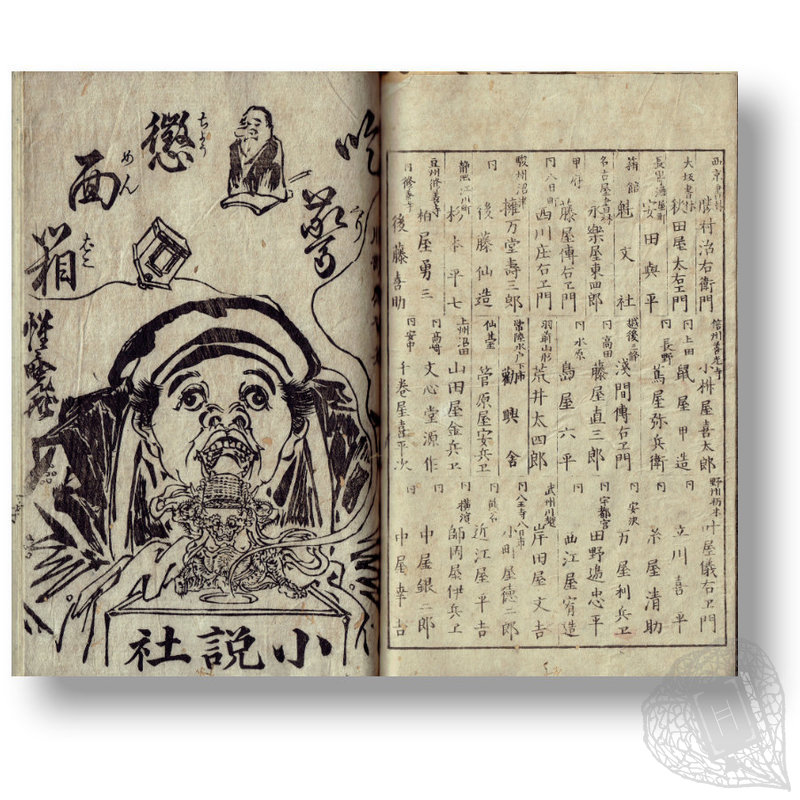 西京書林 勝村治右衛門
大坂書林 秋田屋太右ヱ門
安田與平
箱館 魁文社
名古屋書林 永樂屋東四郎
甲府 藤屋傳右ヱ門
同八日町 西川庄右ヱ門
駿州沼津 擁万堂壽三郎
同 後藤仙造
静岡江川町 杉本平七
豆州修善寺 柏屋勇三
同修善寺 後藤喜助
信州善光寺 小桝屋喜太郎
同上田 鼠屋甲造
同長野 蔦屋弥兵衛
越後三條 淺間傳右ヱ門
同高田 藤屋直三郎
同水原 島屋六平
羽前山形 荒井太四郎
常陸水戸下市 勸興舎
仙臺 菅原屋安兵ヱ
上州沼田 山田屋金兵ヱ
同高崎 文心堂源作
同安中 千巻屋喜平次
野州栃木 叶屋儀右ヱ門
同 立川喜平
同 糸屋清助
同安沢 万屋利兵ヱ
同宇都宮 田野邉忠平
同 曲江屋宥造
武州川越 岸田屋文吉
同八王寺八日市 小町屋徳二郎
同熊谷 近江屋平吉
同横濱 師岡屋伊兵ヱ
同 中屋銀二郎
同 中屋幸吉
驚
懲 ちょう
面 めん
箱 はこ
小説社
H